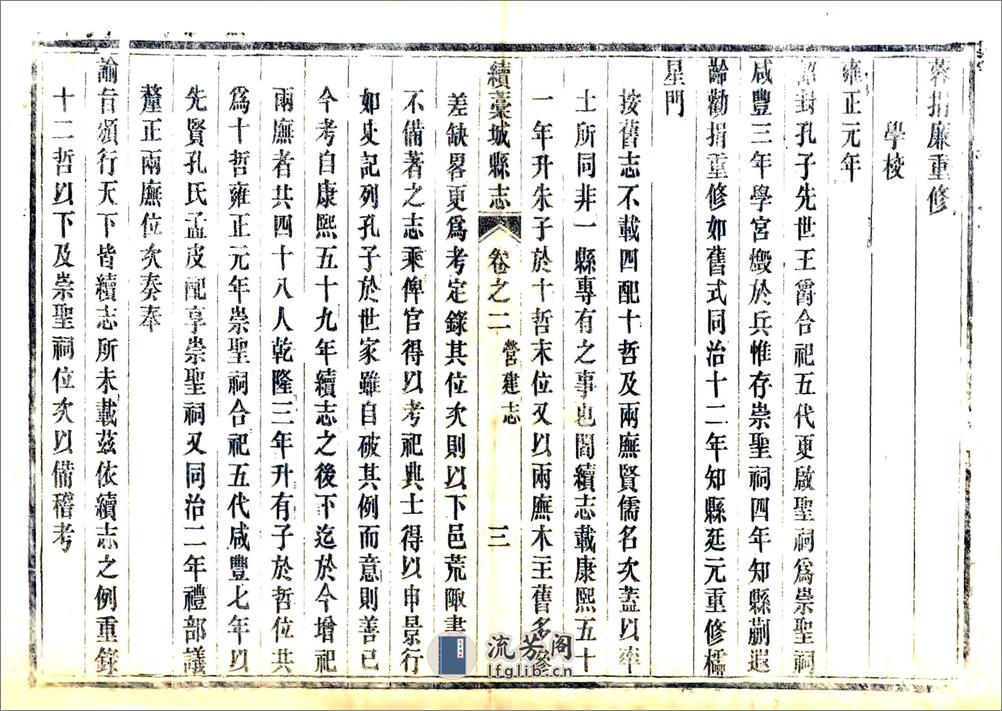 捐廉重修
學校
雍正元年
詔封孔子先世王爵合祀五代更啟聖祠爲崇聖祠
咸豐三年學宮燬於兵惟存崇聖祠四年知縣蒯遐
齡勸捐重修如舊式同治十二年知縣廷元重修櫺
星門
按舊志不載四配十哲及兩廡賢儒名次蓋以率
土所同非一縣專有之事也閻續志載康熙五十
一年升朱子於十哲末位又以兩廡木主舊多
差缺畧更爲考定錄其位次則以下邑荒陬書
不備著之志乘俾官得以考祀典士得以申景行
如史記列孔子於世家雖自破其例而意則善已
今考自康熙五十九年續志之後下迄於今增祀
兩廡者共四十八人乾隆三年升有子於哲位共
爲十二哲雍正元年崇聖祠合祀五代咸豐七年以
先賢孔氏孟皮配享崇聖祠又同治二年禮部議
釐正兩廡位次奏奉
諭旨頒行天下皆續志所未載茲依續志之例重錄
十二哲以下及崇聖祠位次以備稽考
續藁城縣志 卷之二 營建志 三
流芳阁
lfglib.cn